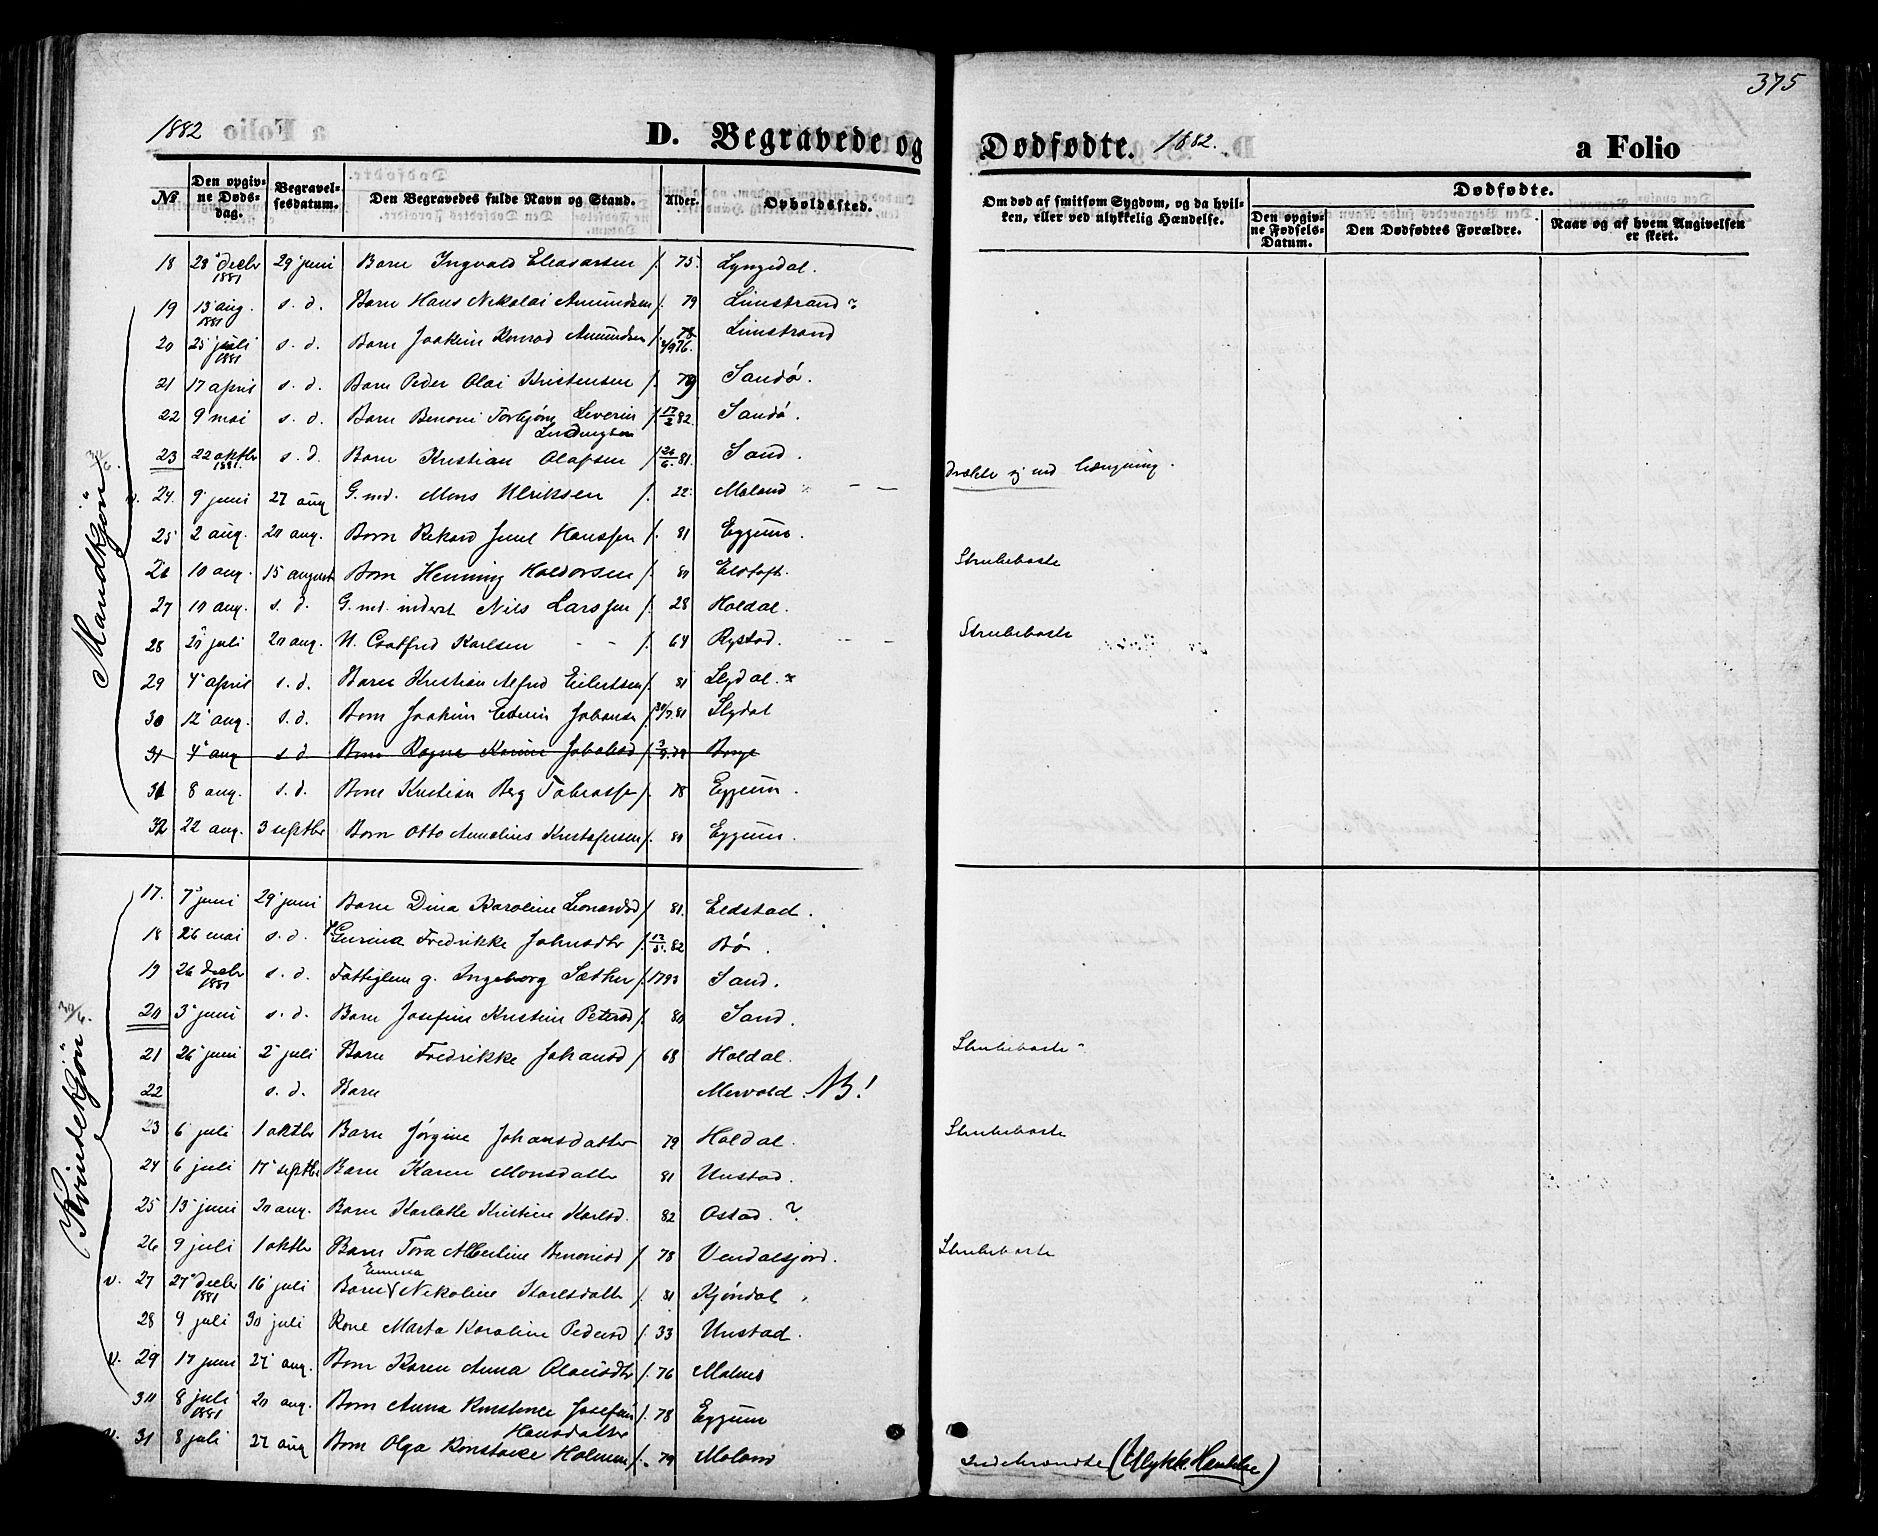 375
1882 D. Begravede og Dødfødte. 1882. a Folio
№ Den opgivne Dødsdag. Begravelsesdatum. Den Begravedes fulde Navn og Stand. Alder. Opholdssted. Om død af smitsom Sygdom, og da hvilken, eller ved ulykkelig Hændelse. Dødfødte.
Den opgivne Fødsels-Datum. Den Dødfødtes Forældre. Naar og af hvem Angivelsen er skeet.
Mandkjön
18 28 decbr 1881 29 juni Barn Ingvald Eleasarsen /. 75. Lyngedal.
19 13 aug. 1881 s. d. Barn Hans Nikolai Amundsen /. 79 Limstrand
20 25 juli 1881 s. d. Barn Joakim Konrad Amundsen /. 76. Limstrand
21 17 april s. d. Barn Peder Olai Kristensen /. 79 Sandö.
22 9 mai s. d. Barn Benoni Torbjørn Severin /. 17/2 82. Sandö.
23 22 oktbr 1881. s. d. Barn Kristian Olafsen /. 24/6. 81. Sand. 
v. 24. 9 juni 27 aug G. md. Mons Ulriksen /. 22. Moland
25 2 aug. 20 aug. Barn Rikard Juul Hanssen /. 81 Eggum.
26 10 aug. 15 august Barn Henning Haldorsen /. 81 Eltoft. Strubehoste
27 10 aug. s. d. G. md. inderst Nils Larssen /. 28 Holdal.
28 20 juli 20 aug. U. Gotfred Karlsen - - /. 64 Rystad. Strubehoste
29 4 april s. d. Barn Kristian Alfred Eilertsen /. 81 Slydal.
30 12 aug. s. d. Barn Joakim Edvin Johanss /. 30/7. 81 Slydal
31 4 aug s. d. Barn Ragna Karine Jakobsd /. Borge
31 8 aug. s. d. Barn Kristian Berg Tobiass /. 78 Eggum.
32 22 aug. 3 septbr Barn Otto Annelius Kristofersen /. 80 Eggum.
Kvindekjön
17. 7 juni 29 juni Barn Dina Karoline Leonardsd /. 81. Eldstad.
18 26 mai s. d. Gurina Fredrikke Johnsdtr /. 12/5. 82 Bö.
19 26 decbr 1881 s. d. Fattiglem g. Ingeborg Sæther /. 1793 Sand.
20 3 juni s. d. Barn Josefine Kristine Petersd /. 80 Sand.
21 26 juni 2 juli Barn Fredrikke Johansd /. 68 Holdal. Strubehoste
22 s. d. Barn Mervold. NB!
23 6 juli 1 oktbr Barn Jörgine Johansdatter 79 Holdal. Strubehoste
24 6 juli 17 septbr Barn Karen Monsdatter 81 Unstad.
25 13 juni 20 aug. Barn Karlotte Kristine Karlsd. 82 Ostad. ?
26 9 juli 1 oktbr Barn Tora Albertine Benonisd /. 78 Vendalsjord. Strubehoste
v. 27 27 decbr 1881 16 juli Barn Emma Nikoline Karlsdatter /. 81 Kjöndal
28 9 juli 30 juli Kone Marta Karoline Pedersd /. 33 Unstad.
v. 29 17 juni 27 aug. Barn Karen Anna Olausdtr /. 76 Malnes
30 8 juli 1881 20 aug. Barn Anna Konstance Josefine Hansdatter /. 78 Eggum
v. 31 8 juli 27 aug Barn Olga Konstance Holmen /. 79 Moland Indebrændte (Ulykk. Hændelse)